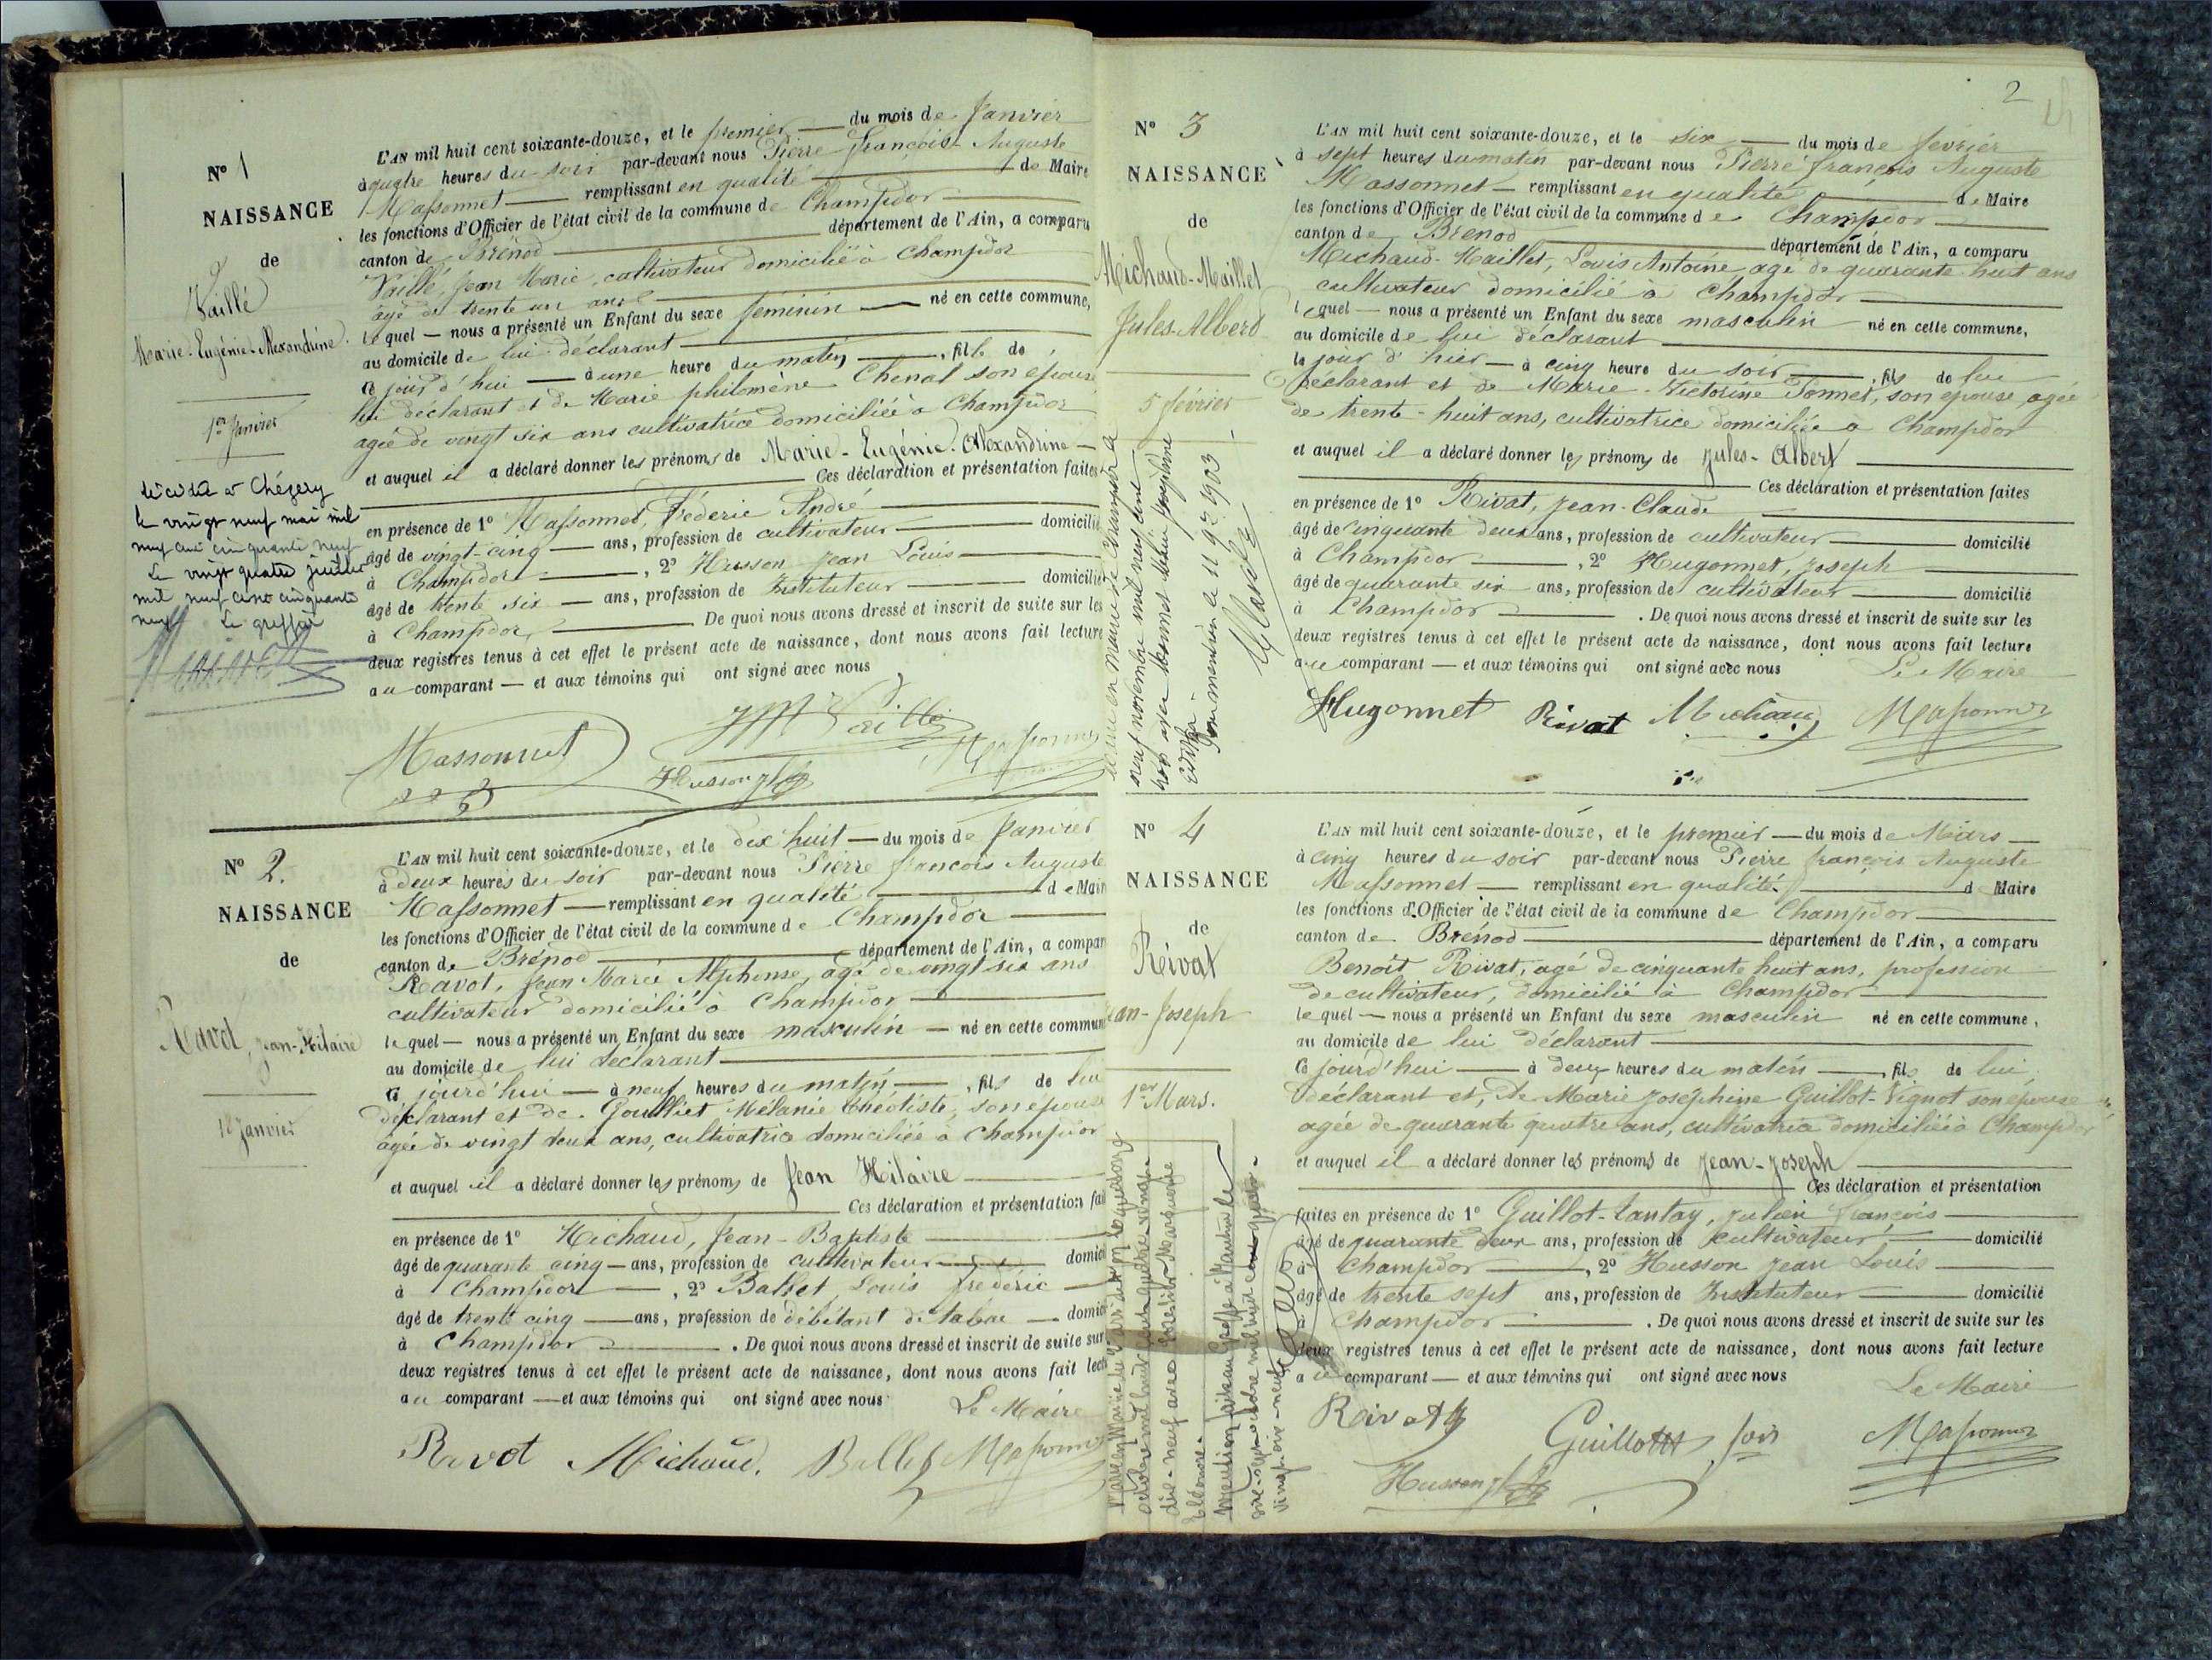 N° 1
NAISSANCE
de
Vaillé
Marie-Eugénie-Alexandrine
1er Janvier
décédée à Chézery
le vingt neuf mai mil
neuf cent cinquante neuf
Le vingt quatre juillet
mil neuf cent cinquante
neuf Le greffier
L'AN mil huit cent soixante-douze, et le premier — du mois de Janvier
à quatre heures du soir par-devant nous Pierre François Auguste
Massonnet — remplissant en qualité — de Maire
les fonctions d'Officier de l'état civil de la commune de Champdor
canton de Brénod — département de l'Ain, a comparu
Vaillé, Jean Marie, cultivateur domicilié à Champdor
agé de trente un ans
lequel — nous a présenté un Enfant du sexe féminin — né en cette commune,
au domicile de lui déclarant
ce jour d'hui — à une heure du matin —, fille de
lui déclarant et de Marie philomène Chenal son épouse
agée de vingt six ans cultivatrice domiciliée à Champdor
et auquel il a déclaré donner les prénoms de Marie-Eugénie-Alexandrine —
Ces déclaration et présentation faites
en présence de 1° Massonnet, Féderic André
âgé de vingt-cinq — ans, profession de cultivateur — domicilié
à Champdor —, 2° Husson Jean Louis
âgé de trente six — ans, profession de Instituteur — domicilié
à Champdor — De quoi nous avons dressé et inscrit de suite sur les
deux registres tenus à cet effet le présent acte de naissance, dont nous avons fait lecture
au comparant — et aux témoins qui ont signé avec nous
Massonnet JM Vaillé
Husson Massonnet
N° 2.
NAISSANCE
de
Ravot, Jean-Hilaire
18 Janvier
L'AN mil huit cent soixante-douze, et le dix huit — du mois de Janvier
à deux heures du soir par-devant nous Pierre François Auguste
Massonnet — remplissant en qualité — de Mair
les fonctions d'Officier de l'état civil de la commune de Champdor
canton de Brénod — département de l'Ain, a compar
Ravot, Jean Marie Alphonse, âgé de vingt six ans
cultivateur domicilié à Champdor
lequel — nous a présenté un Enfant du sexe masculin — né en cette commun
au domicile de lui déclarant
ce jourd'hui — à neuf heures du matin —, fils de lui
déclarant et de Goulliet Mélanie Théotiste, son épouse
âgée de vingt deux ans, cultivatrice domiciliée à Champdor
et auquel il a déclaré donner les prénoms de Jean Hilaire
Ces déclaration et présentation fai
en présence de 1° Michaud, Jean-Baptiste
âgé de quarante cinq — ans, profession de cultivateur — domici
à Champdor —, 2° Ballet Louis frédéric
âgé de trente cinq — ans, profession de débitant de tabac — domici
à Champdor — . De quoi nous avons dressé et inscrit de suite sur
deux registres tenus à cet effet le présent acte de naissance, dont nous avons fait lectu
au comparant — et aux témoins qui ont signé avec nous
Le Maire
Ravot Michaud. Ballet Massonnet
2
N° 3
NAISSANCE
de
Michaud-Maillet
Jules-Albert
5 février
neuf novembre mil neuf cent
Pour mention le 11 9bre 1903
L'AN mil huit cent soixante-douze, et le six — du mois de février
à sept heures du matin par-devant nous Pierre françois Auguste
Massonnet — remplissant en qualité — de Maire
les fonctions d'Officier de l'état civil de la commune de Champdor
canton de Brenod — département de l'Ain, a comparu
Michaud-Maillet, Louis Antoine agé de quarante huit ans
cultivateur domicilié à Champdor
lequel — nous a présenté un Enfant du sexe masculin né en cette commune,
au domicile de lui déclarant
le jour d'hier — à cinq heure du soir —, fils de lui
déclarant et de Marie-Victorine Tonnet, son épouse agée
de trente-huit ans, cultivatrice domiciliée à Champdor
et auquel il a déclaré donner les prénoms de Jules-Albert
Ces déclaration et présentation faites
en présence de 1° Rivat, Jean-Claude
âgé de cinquante deux ans, profession de cultivateur — domicilié
à Champdor —, 2° Hugonnet, Joseph
âgé de quarante six ans, profession de cultivateur — domicilié
à Champdor — . De quoi nous avons dressé et inscrit de suite sur les
deux registres tenus à cet effet le présent acte de naissance, dont nous avons fait lecture
au comparant — et aux témoins qui ont signé avec nous Le Maire
Hugonnet Rivat Michaud Massonnet
N° 4
NAISSANCE
de
Rivat
Jean-Joseph
1er Mars.
L'AN mil huit cent soixante-douze, et le premier — du mois de Mars —
à cinq heures du soir par-devant nous Pierre françois Auguste
Massonnet — remplissant en qualité — d Maire
les fonctions d'Officier de l'état civil de la commune de Champdor
canton de Brénod — département de l'Ain, a comparu
Benoît Rivat, agé de cinquante huit ans, profession
de cultivateur, domicilié à Champdor
lequel — nous a présenté un Enfant du sexe masculin né en cette commune,
au domicile de lui déclarant
ce jourd'hui — à deux heures du matin —, fils de lui,
déclarant et, de Marie Joséphine Guillot-Vignot son épouse
agée de quarante quatre ans, cultivatrice domiciliée à Champdor
et auquel il a déclaré donner les prénoms de Jean-Joseph
Ces déclaration et présentation
faites en présence de 1° Guillot-Tantay, Julien François
âgé de quarante deux ans, profession de cultivateur — domicilié
à Champdor —, 2° Husson Jean Louis
âgé de trente sept ans, profession de Instituteur — domicilié
à Champdor — . De quoi nous avons dressé et inscrit de suite sur les
deux registres tenus à cet effet le présent acte de naissance, dont nous avons fait lecture
au comparant — et aux témoins qui ont signé avec nous
Le Maire
Rivat Guillot Massonnet
Husson